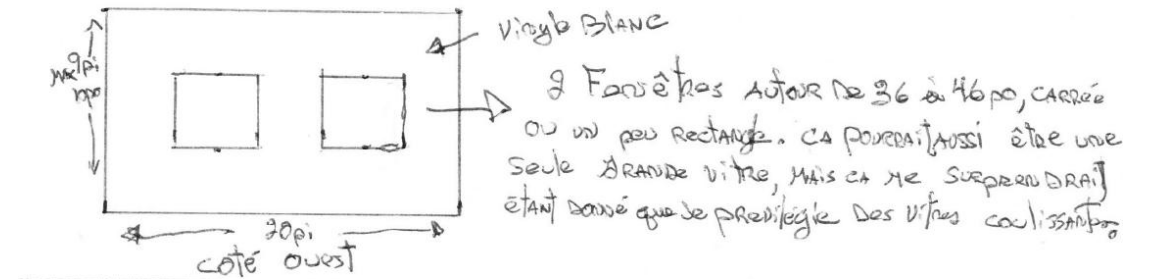 Vinyle BLANC
2 Fenêtres AUTOUR De 36 à 46 po, CARRée
OU UN peu RectANgle. ÇA POURRAIT AUSSI être UNE
Seule GRANDe Vitre, MAIS ÇA Me SURPRENDRAIT
étANT DONNé que Je PReVilégie Des Vitres coulissantes.
MAX 9pi
10po
20pi
côté ouest